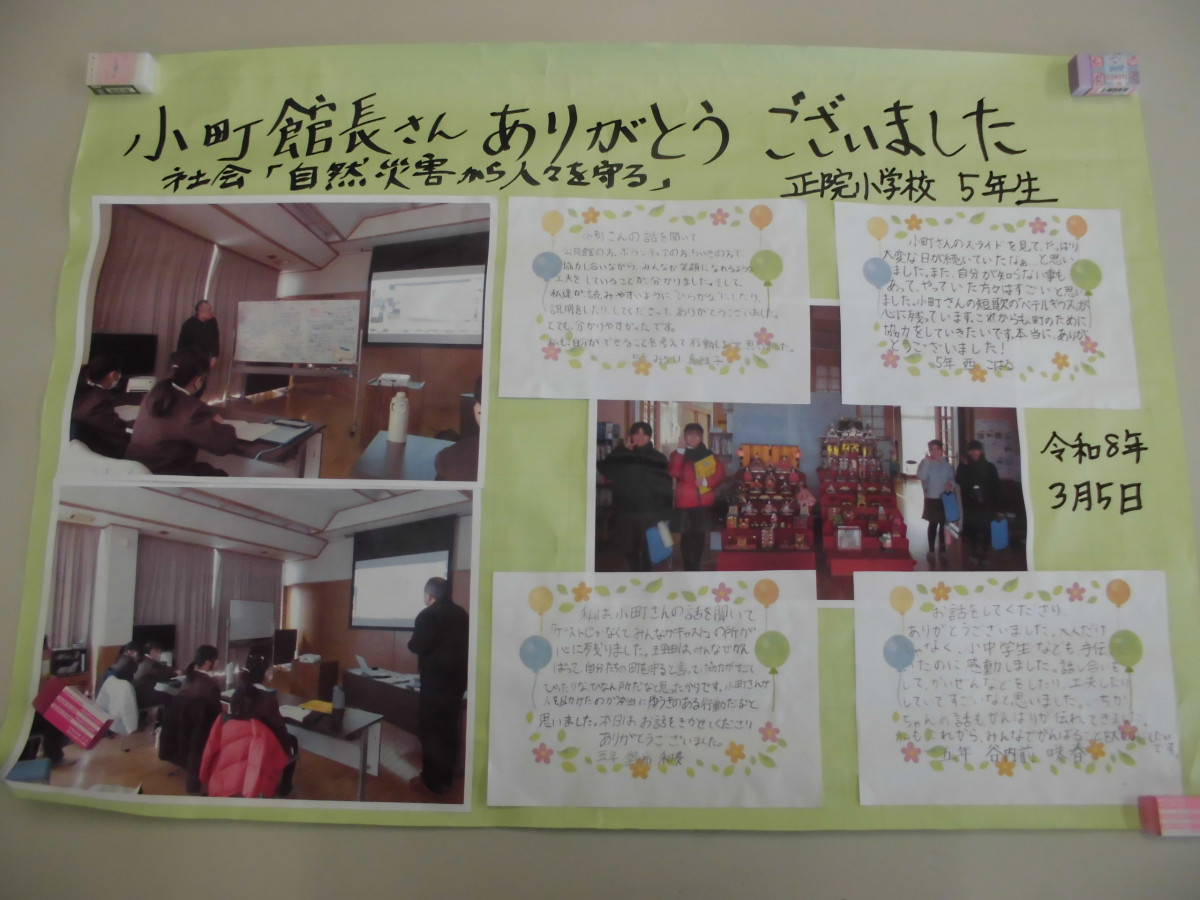 小町館長さん ありがとう ございました
社会「自然災害から人々を守る」
正院小学校 5年生
小町さんの話を聞いて
公民館の方、ボランティアの方、ちいきの方で、
協力し合いながら、みんなが笑顔になれるような
工夫をしていることが分かりました。そして、
私達が読みやすいように、ひらがなにしたり、
説明をしたりしてくださって、ありがとうございました。
とても、分かりやすかったです。
小町さんのスライドを見て、やっぱり
大変な日が続いていたなぁと思い
ました。また、自分が知らない事も
あって、やっていた方々はすごいと思い
ました。小町さんの短歌のベテルギウスが
心に残っています。これからも、町のために
協力をしていきたいです。本当に、ありが
とうございました!
5年 西 こはる
令和8年
3月5日
私は、小町さんの話を聞いて
「ゲストじゃなくて、みんながキャスト」の所が
心に残りました。
ばって、自分たちの町を守ると言って、協力
人を助けたのが本当にゆうきのある行動だなと
思いました。本日は、お話をきかせてくださり
ありがとうございました。
お話をしてくださり、
ありがとうございました。大人だけ
じゃなく、小中学生なども手伝
いたのに感動しました。話し合いを
して、かいぜんなどをしたり、工夫したり
していてすごいなと思いました。
ちゃんの話もがんばりが伝わ
五年 谷内前